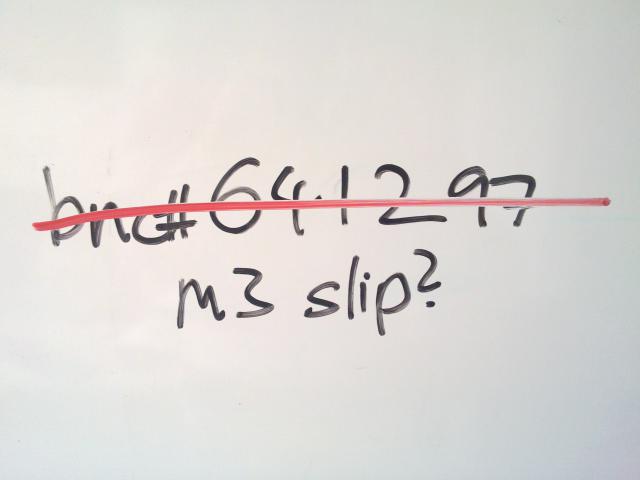 bnc#641297
m3 slip?